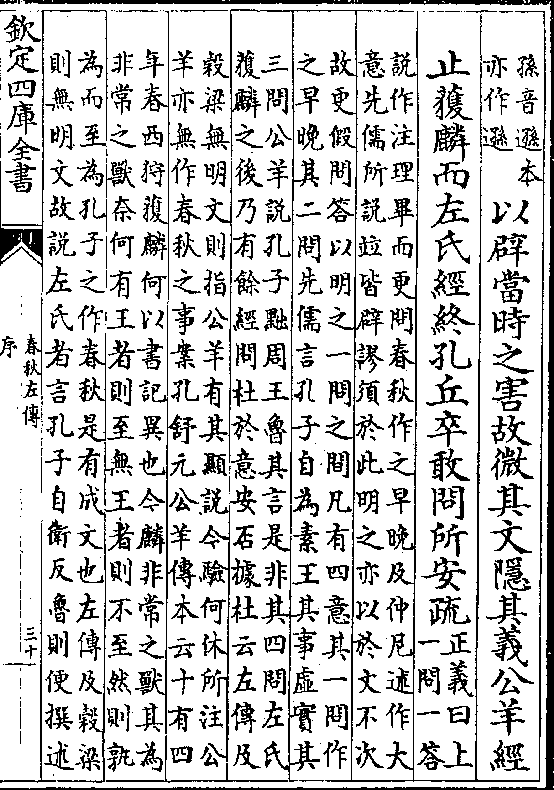 孫音遜本
亦作遜
以辟當時之害故微其文隱其義公羊經
止獲麟而左氏經終孔丘卒敢問所安疏
正義曰上
一問一答
說作注理畢而更問春秋作之早晚及仲尼述作大
意先儒所說竝皆辟謬須於此明之亦以於文不次
故更假問答以明之一問之間凡有四意其一問作
之早晚其二問先儒言孔子自為素王其事虛實其
三問公羊說孔子黜周王魯其言是非其四問左氏
獲麟之後乃有餘經問杜於意安否據杜云左傳及
穀梁無明文則指公羊有其顯說今驗何休所注公
羊亦無作春秋之事案孔舒元公羊傳本云十有四
年春西狩獲麟何以書記異也今麟非常之獸其為
非常之獸奈何有王者則至無王者則不至然則孰
為而至為孔子之作春秋是有成文也左傳及穀梁
則無明文故說左氏者言孔子自衛反魯則便撰述
欽定四庫全書
春秋左傳
序
三十